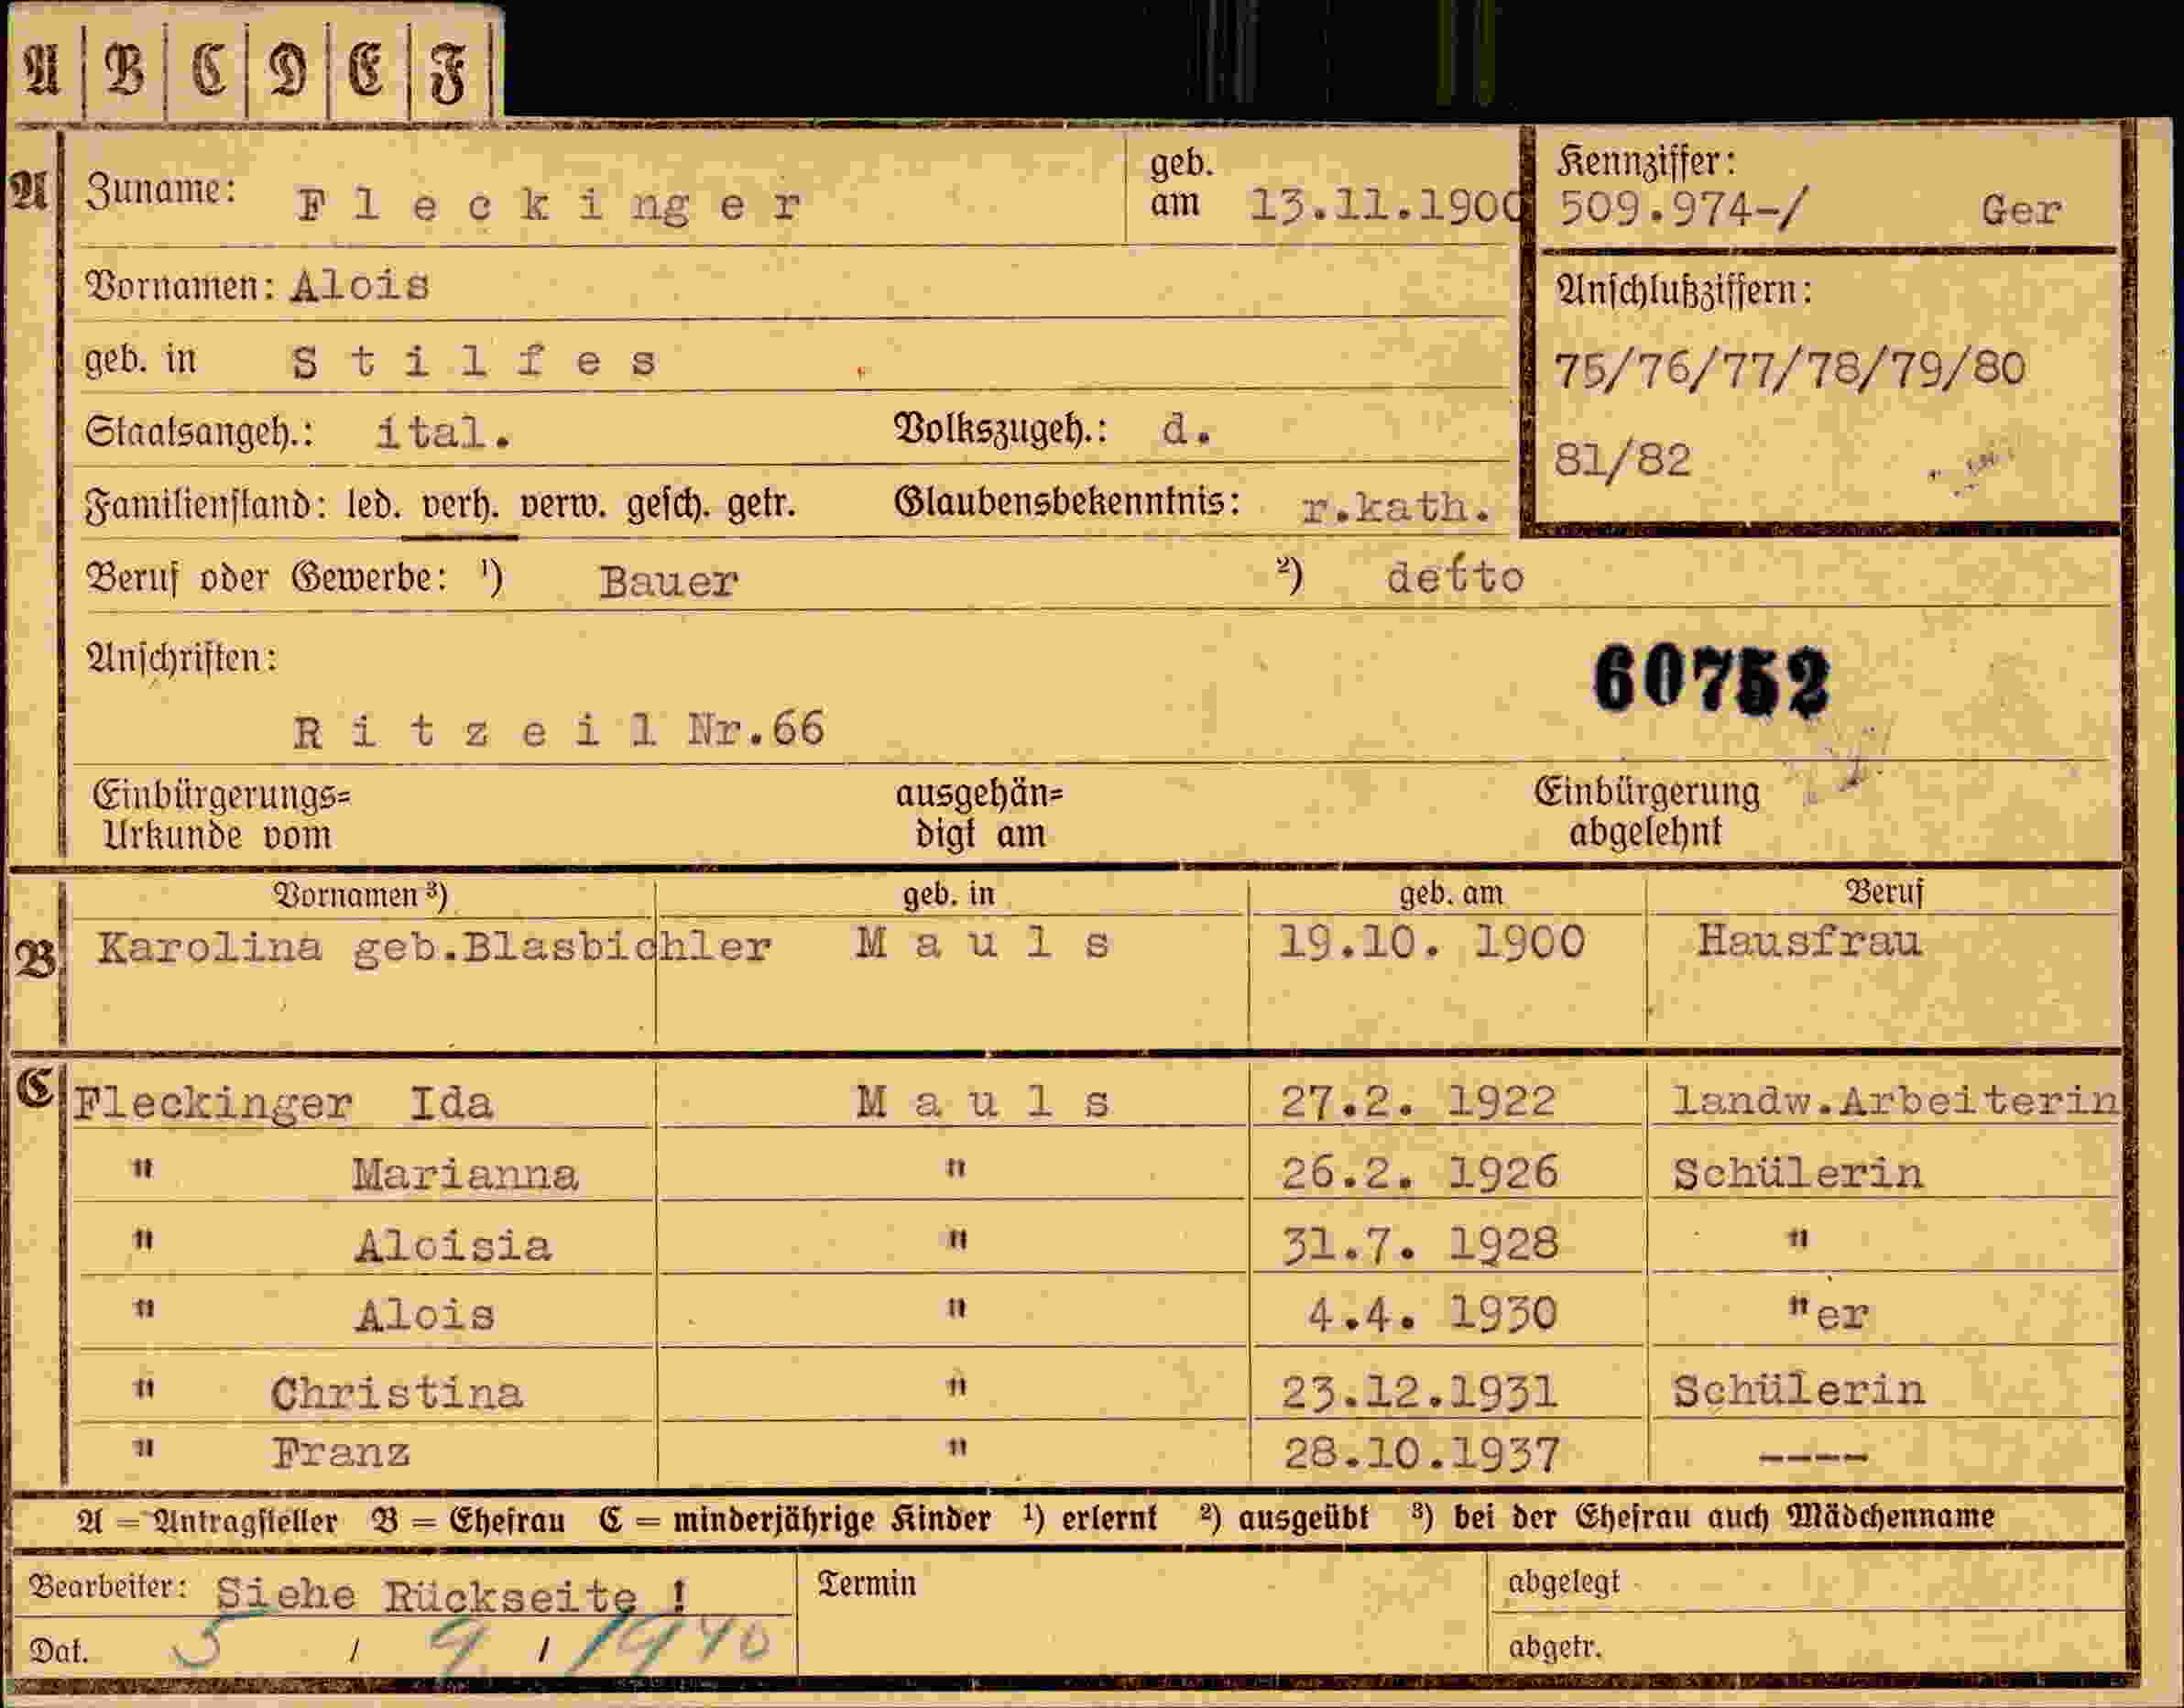 A B C D E F
A Zuname: Fleckinger geb. am 13.11.1900 Kennziffer: 509.974-/ Ger
Vornamen: Alois Anschlußziffern:
geb. in Stilfes 75/76/77/78/79/80
Staatsangeh.: ital. Volkszugeh.: d. 81/82
Familienstand: led. verh. verw. gesch. getr. Glaubensbekenntnis: r.kath.
Beruf oder Gewerbe: ¹) Bauer ²) detto
Anschriften: 60752
Ritzeil Nr.66
Einbürgerungs= ausgehän= Einbürgerung
Urkunde vom digt am abgelehnt
Vornamen ³) geb. in geb. am Beruf
B Karolina geb.Blasbichler Mauls 19.10. 1900 Hausfrau
C Fleckinger Ida Mauls 27.2. 1922 landw.Arbeiterin
" Marianna " 26.2. 1926 Schülerin
" Aloisia " 31.7. 1928 "
" Alois " 4.4. 1930 "er
" Christina " 23.12.1931 Schülerin
" Franz " 28.10.1937 ----
A = Antragsteller B = Ehefrau C = minderjährige Kinder ¹) erlernt ²) ausgeübt ³) bei der Ehefrau auch Mädchenname
Bearbeiter: Siehe Rückseite ! Termin abgelegt
Dat. 5 / 9 / 1940 abgetr.